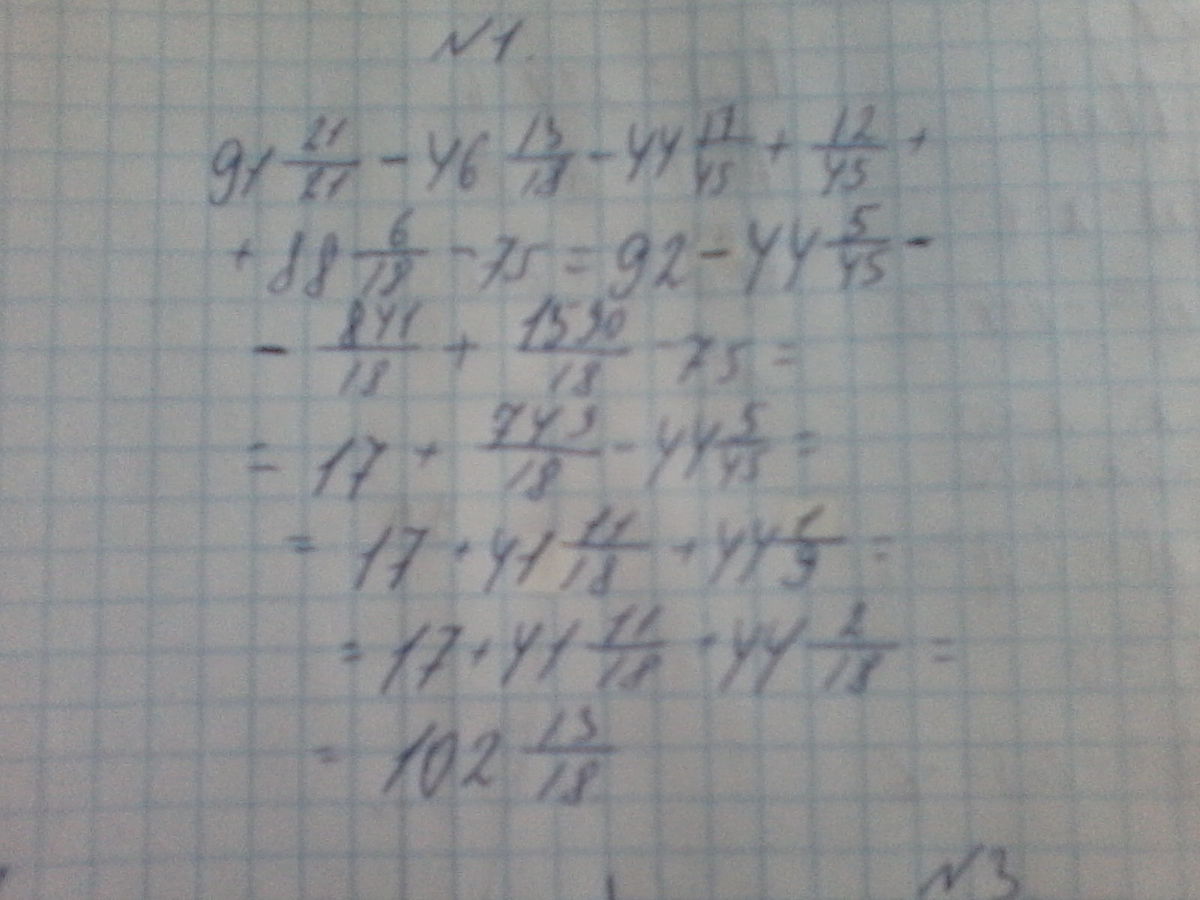 №1.
91 21/21 - 46 13/18 - 44 17/45 + 12/45 +
+ 88 6/18 - 75 = 92 - 44 5/45 -
- 841/18 + 1590/18 - 75 =
= 17 + 749/18 - 44 5/45 =
= 17 + 41 11/18 + 44 1/9 =
= 17 + 41 11/18 + 44 2/18 =
= 102 13/18
№3